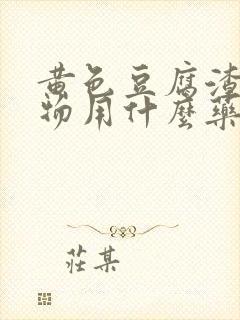 黄色豆腐渣
物用什麼藥
莊某